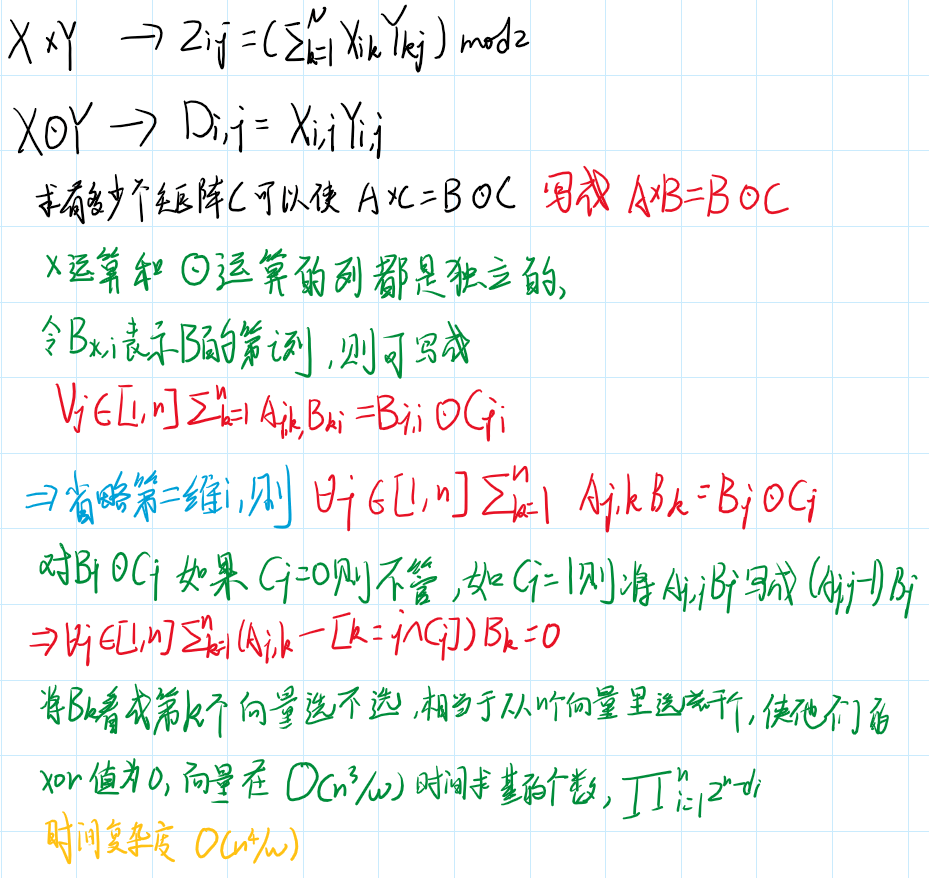 X×Y → Zij = (∑_{k=1}^{N} X_{ik}Y_{kj}) mod2
X⊙Y → D_{i,j} = X_{i,j}Y_{i,j}
求有多少个矩阵C可以使 A×C=B⊙C 写成 A×B=B⊙C
×运算和⊙运算的列都是独立的,
令B_{x,i}表示B的第i列,则可写成
∀j∈[1,n] ∑_{k=1}^{n} A_{j,k}B_{ki}=B_{j,i}⊙C_{ji}
⇒省略第二维i,则 ∀j∈[1,n] ∑_{k=1}^{n} A_{j,k}B_k=B_j⊙C_j
对B_j⊙C_j 如果 C_j=0则不管,如C_j=1则将A_{j,j}B_j写成(A_{j,j}-1)B_j
⇒∀j∈[1,n] ∑_{k=1}^{n}(A_{j,k}-[k=j∧C_j])B_k=0
将B_k看成第k个向量选不选,相当于从n个向量里选若干个,使他们的
xor值为0,向量在O(n³/w)时间求基的个数,∏_{i=1}^{n}2^{n-d_i}
时间复杂度 O(n⁴/w)